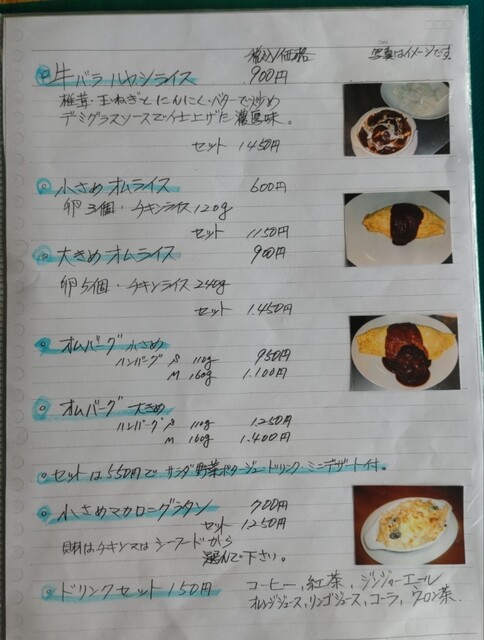 税込価格 写真はイメージです。
牛バラハヤシライス 900円
椎茸・玉ねぎとにんにく・バターで炒め
デミグラスソースで仕上げた濃厚味。
セット 1450円
小さめオムライス 600円
卵3個・チキンライス120g
セット 1150円
大きめオムライス 900円
卵5個・チキンライス240g
セット 1.450円
オムバーグ 小さめ
ハンバーグ S 110g 950円
M 160g 1.100円
オムバーグ 大きめ
ハンバーグ S 110g 1.250円
M 160g 1.400円
セットは550円でサラダ野菜ポタージュ・ドリンク・ミニデザート付。
小さめマカロニグラタン 700円
セット 1250円
具材はチキン又はシーフードから
選んで下さい。
ドリンクセット150円 コーヒー, 紅茶, ジンジャーエール
オレンジジュース, リンゴジュース, コーラ, ウーロン茶